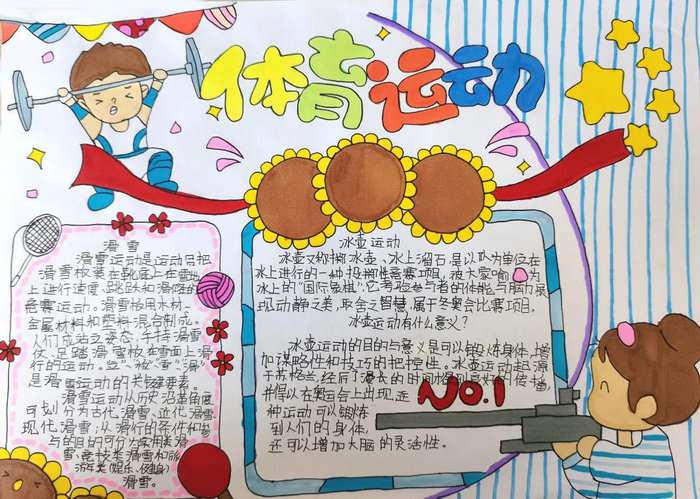 体育运动
滑雪
滑雪运动是运动员把
滑雪板装在靴底上在雪地
上进行速度、跳跃和滑降的
竞赛运动。滑雪板用木材、
金属材料和塑料混合制成。
人们成站立姿态，手持滑雪
仗、足踏滑雪板在雪面上滑
行的运动。“立”“板”“雪”“滑”
是滑雪运动的关键要素。
滑雪运动从历史沿革角度
可划分为古代滑雪、近代滑雪、
现代滑雪；从滑行的条件和参
与的目的可分为实用类滑
雪、竞技类滑雪和旅
游类(娱乐、健身)
滑雪。
冰壶运动
冰壶又称掷冰壶、冰上溜石是以队为单位在
冰上进行的一种投掷性竞赛项目，被大家喻为
冰上的“国际象棋”，它考验参与者的体能与脑力，展
现动静之美，取舍之智慧，属于冬奥会比赛项目。
冰壶运动有什么意义？
冰壶运动的目的与意义是可以锻炼身体，增
加谋略性和技巧的把控性。冰壶运动起源
于苏格兰，经后了漫长的时间得到更好的传播，
并得以在奥运会上出现，这
种运动可以锻炼
到人们的身体，
还可以增加大脑的灵活性。
NO.1